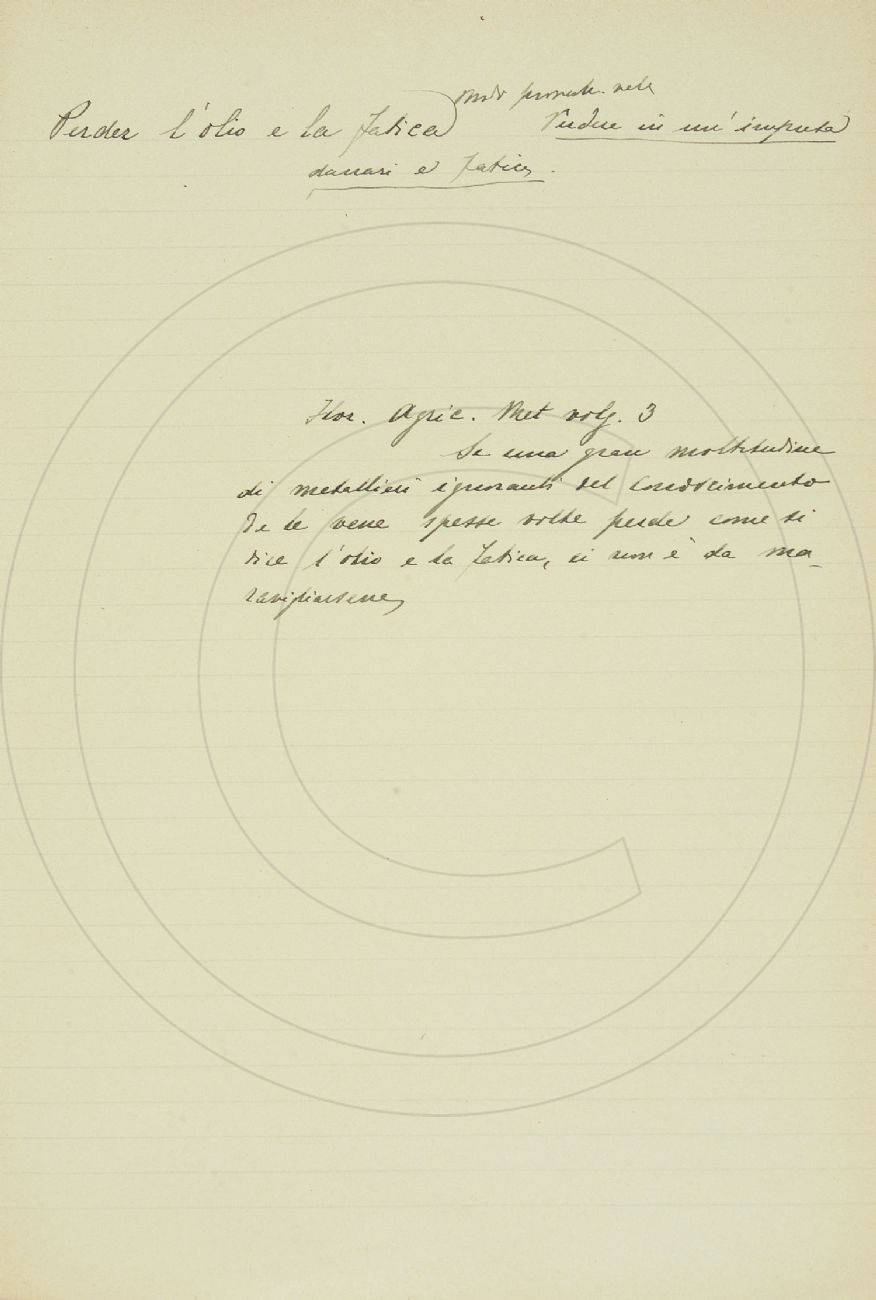 modo proverb. vale
Perder l'olio e la fatica Perdere in un'impresa
danari e fatica.
Flor. Agric. Met volg. 3
Se una gran moltitudine
di metallieri ignoranti del conoscimento
de le vene spesse volte perde come si
dice l'olio e la fatica, ei non è da ma-
ravigliarsene